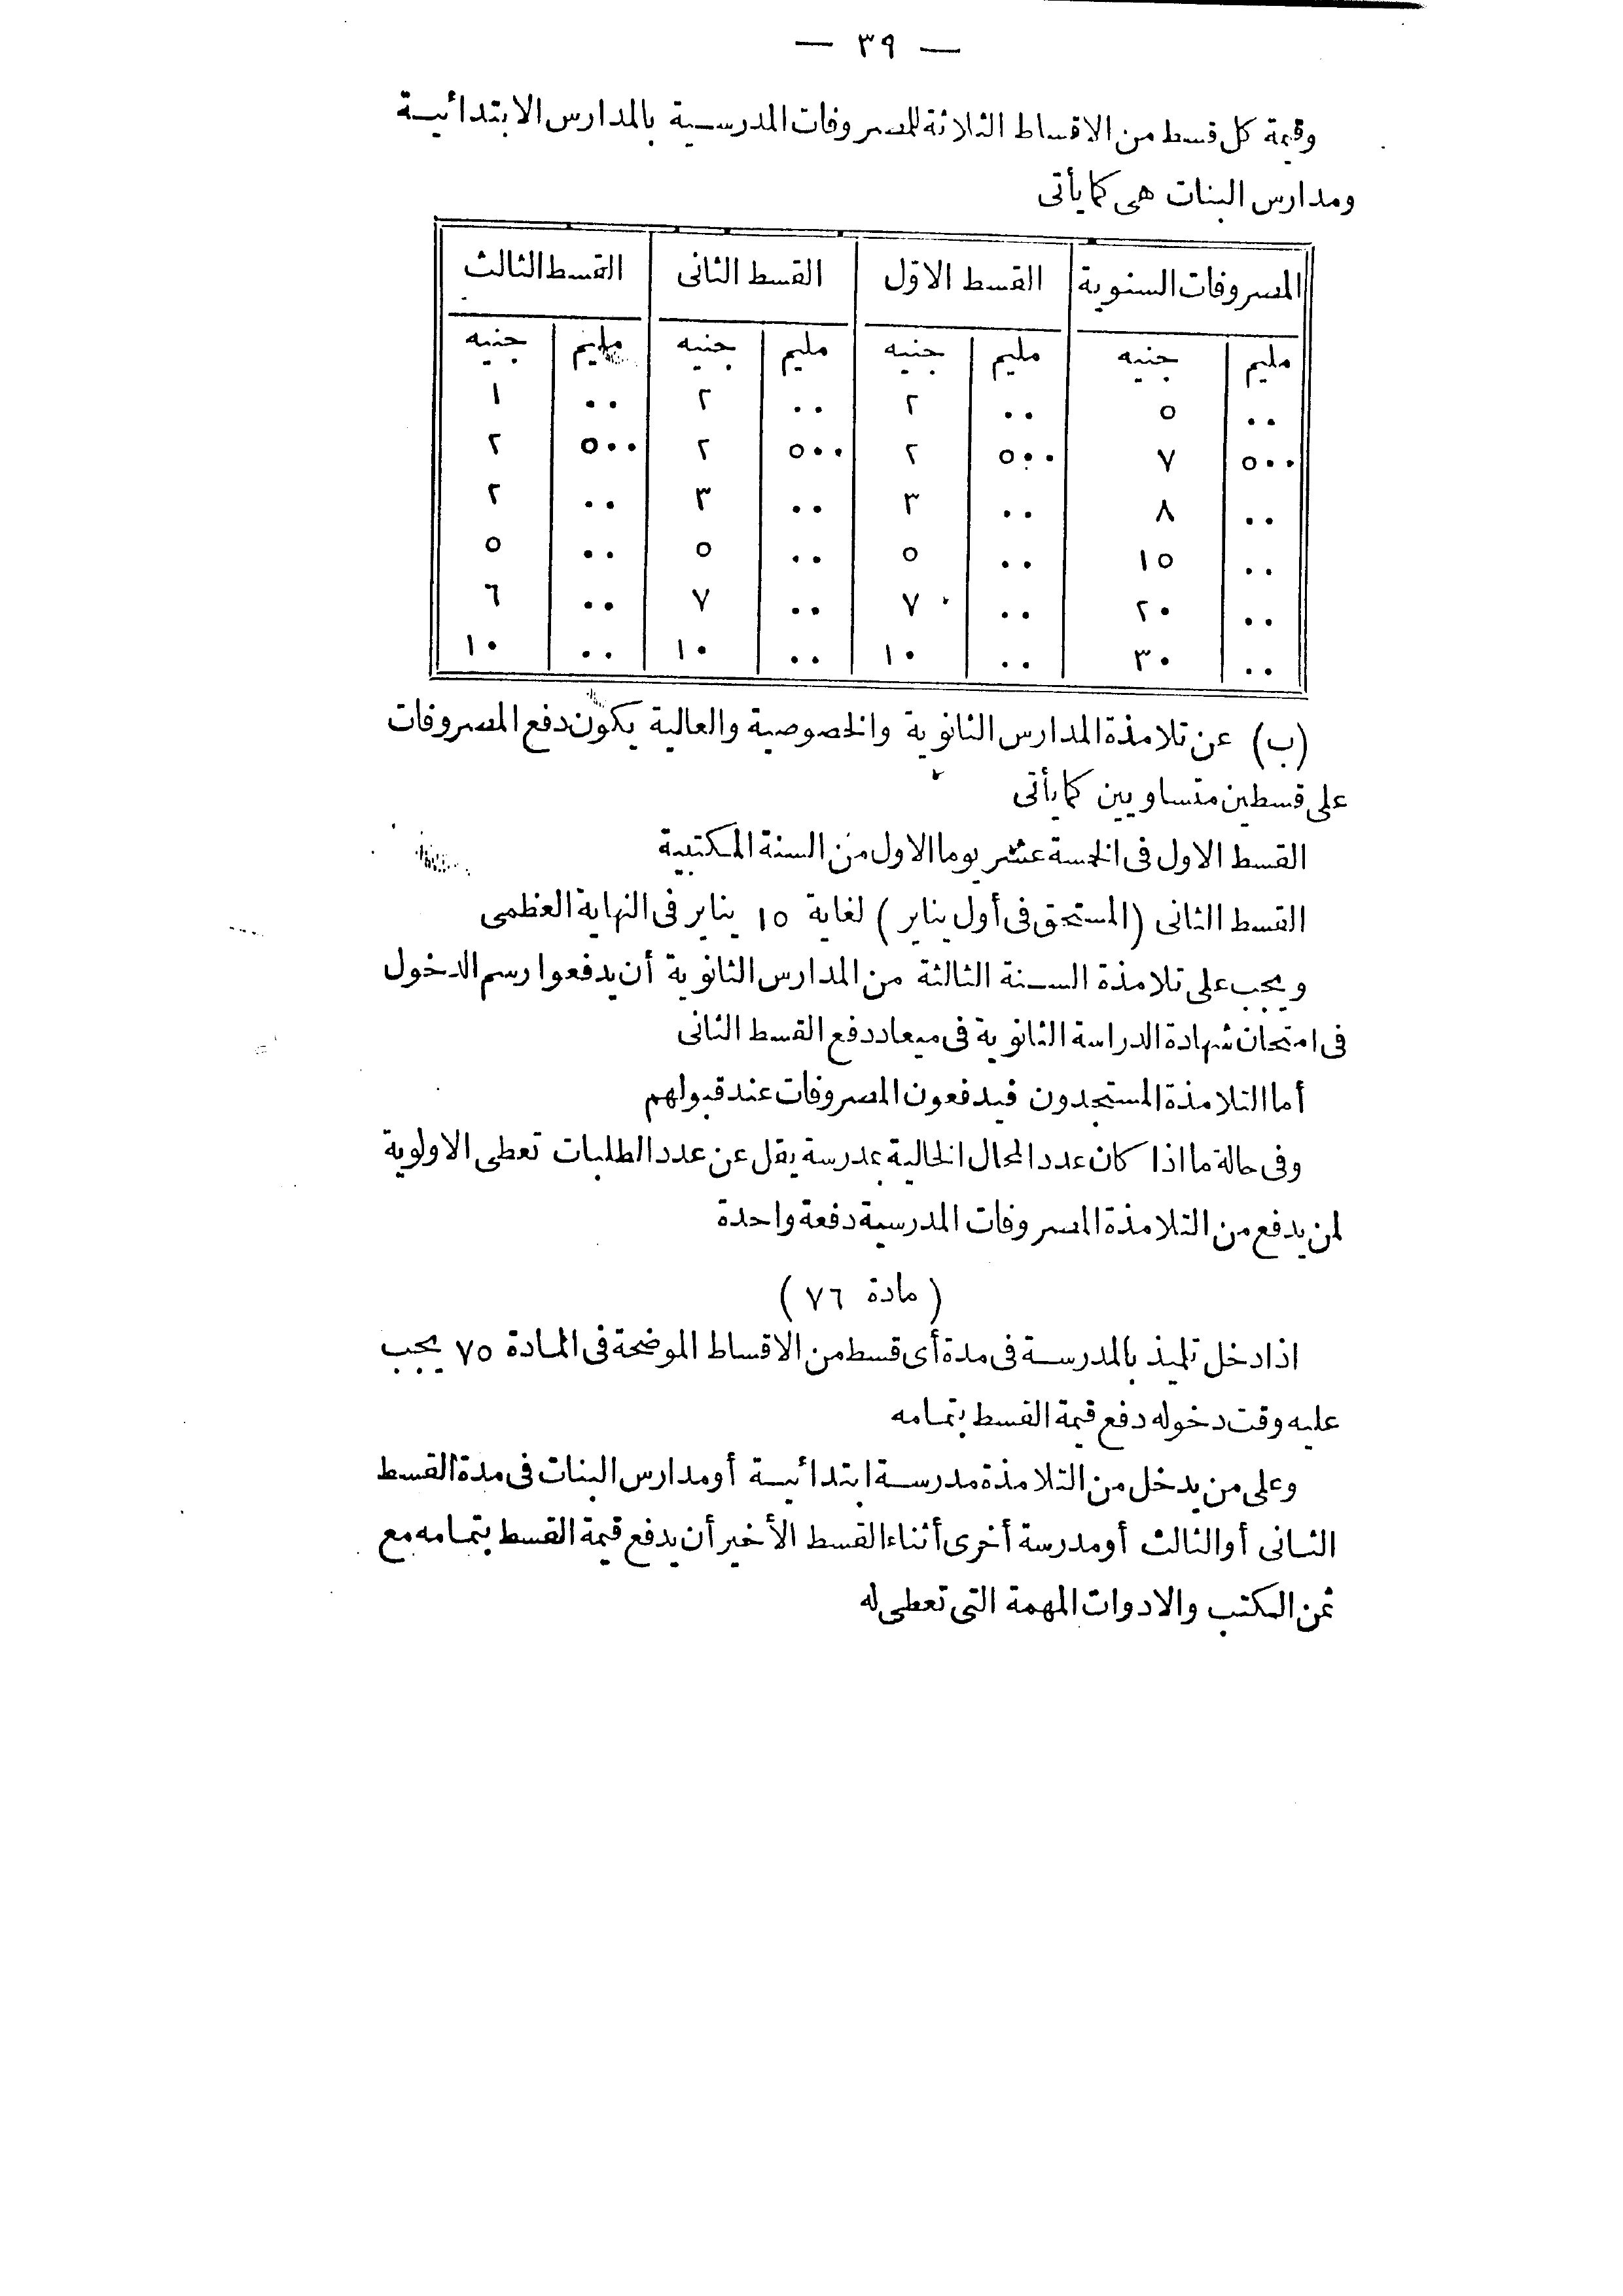 — ٣٩ —
وقيمة كل قسط من الاقساط الثلاثة للمصروفات المدرسية بالمدارس الابتدائية
ومدارس البنات هى كما يأتى
المصروفات السنوية القسط الاوّل القسط الثانى القسط الثالث
مليم جنيه مليم جنيه مليم جنيه مليم جنيه
٠٠ ٥ ٠٠ ٢ ٠٠ ٢ ٠٠ ١
٥٠٠ ٧ ٥٠٠ ٢ ٥٠٠ ٢ ٥٠٠ ٢
٠٠ ٨ ٠٠ ٣ ٠٠ ٣ ٠٠ ٢
٠٠ ١٥ ٠٠ ٥ ٠٠ ٥ ٠٠ ٥
٠٠ ٢٠ ٠٠ ٧ ٠٠ ٧ ٠٠ ٦
٠٠ ٣٠ ٠٠ ١٠ ٠٠ ١٠ ٠٠ ١٠
(ب) عن تلامذة المدارس الثانوية والخصوصية والعالية يكون دفع المصروفات
على قسطين متساويين كما يأتى
القسط الاول فى الخمسة عشر يوما الاول من السنة المكتبية
القسط الثانى (المستحق فى أول يناير) لغاية ١٥ يناير فى النهاية العظمى
ويجب على تلامذة السنة الثالثة من المدارس الثانوية أن يدفعوا رسم الدخول
فى امتحان شهادة الدراسة الثانوية فى ميعاد دفع القسط الثانى
أما التلامذة المستجدون فيدفعون المصروفات عند قبولهم
وفى حالة ما اذا كان عدد المحال الخالية بمدرسة يقل عن عدد الطلبات تعطى الاولوية
لمن يدفع من التلامذة المصروفات المدرسية دفعة واحدة
(مادة ٧٦)
اذا دخل تلميذ بالمدرسة فى مدة أى قسط من الاقساط الموضحة فى المادة ٧٥ يجب
عليه وقت دخوله دفع قيمة القسط بتمامه
وعلى من يدخل من التلامذة مدرسة ابتدائية أو مدارس البنات فى مدة القسط
الثانى أو الثالث أو مدرسة أخرى أثناء القسط الأخير أن يدفع قيمة القسط بتمامه مع
ثمن الكتب والادوات المهمة التى تعطى له